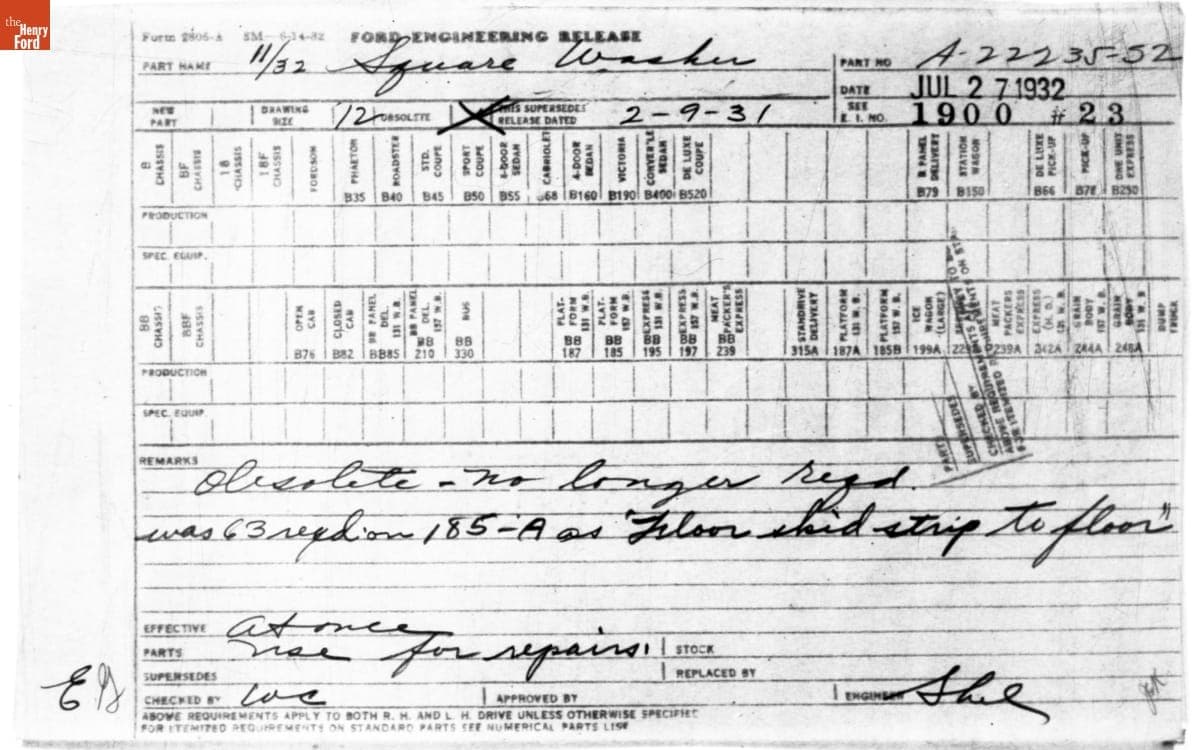 the Henry Ford
Form 2805-A 5M-6-14-32 FORD ENGINEERING RELEASE
PART NAME 11/32 Square Washer PART NO A-22235-S2
DATE JUL 27 1932
NEW PART DRAWING SIZE 12 OBSOLETE X THIS SUPERSEDES RELEASE DATED 2-9-31 SEE E. I. NO. 1900 #23
B CHASSIS BF CHASSIS 18 CHASSIS 18F CHASSIS FORDSON PHAETON B35 ROADSTER B40 STD. COUPE B45 SPORT COUPE B50 2-DOOR SEDAN B55 CABRIOLET B68 4-DOOR SEDAN B160 VICTORIA B190 CONVER'LE SEDAN B400 DE LUXE COUPE B520 B PANEL DELIVERY B79 STATION WAGON B150 DE LUXE PICK-UP B66 PICK-UP B78 ONE UNIT EXPRESS B250
PRODUCTION
SPEC. EQUIP.
BB CHASSIS BBF CHASSIS OPEN CAB B76 CLOSED CAB B82 BB PANEL DEL. 131 W.B. BB85 BB PANEL DEL. 157 W.B. BB 210 BUS BB 330 PLAT-FORM 131 W.B. BB 187 PLAT-FORM 157 W.B. BB 185 EXPRESS 131 W.B. BB 195 EXPRESS 157 W.B. BB 197 MEAT PACKER'S EXPRESS BB 239 STANDRIVE DELIVERY 315A PLATFORM 131 W.B. 187A PLATFORM 157 W.B. 185B ICE WAGON (LARGE) 199A MEAT PACKERS EXPRESS 239A EXPRESS 242A GRAIN BODY 157 W.B. 244A GRAIN BODY 131 W B 248A DUMP TRUCK
PRODUCTION
SPEC. EQUIP.
PARTS
SUPERSEDES
CHECKED BY
ABOVE REQUIREMENTS
FOR ITEMIZED REQUIREMENTS ON
REMARKS
Obsolete - no longer reqd.
was 63 reqd on 185-A as "Floor skid strip to floor"
EFFECTIVE At once
PARTS use for repairs. STOCK
SUPERSEDES REPLACED BY
CHECKED BY APPROVED BY ENGINEER
ABOVE REQUIREMENTS APPLY TO BOTH R. H. AND L. H. DRIVE UNLESS OTHERWISE SPECIFIED
FOR ITEMIZED REQUIREMENTS ON STANDARD PARTS SEE NUMERICAL PARTS LIST